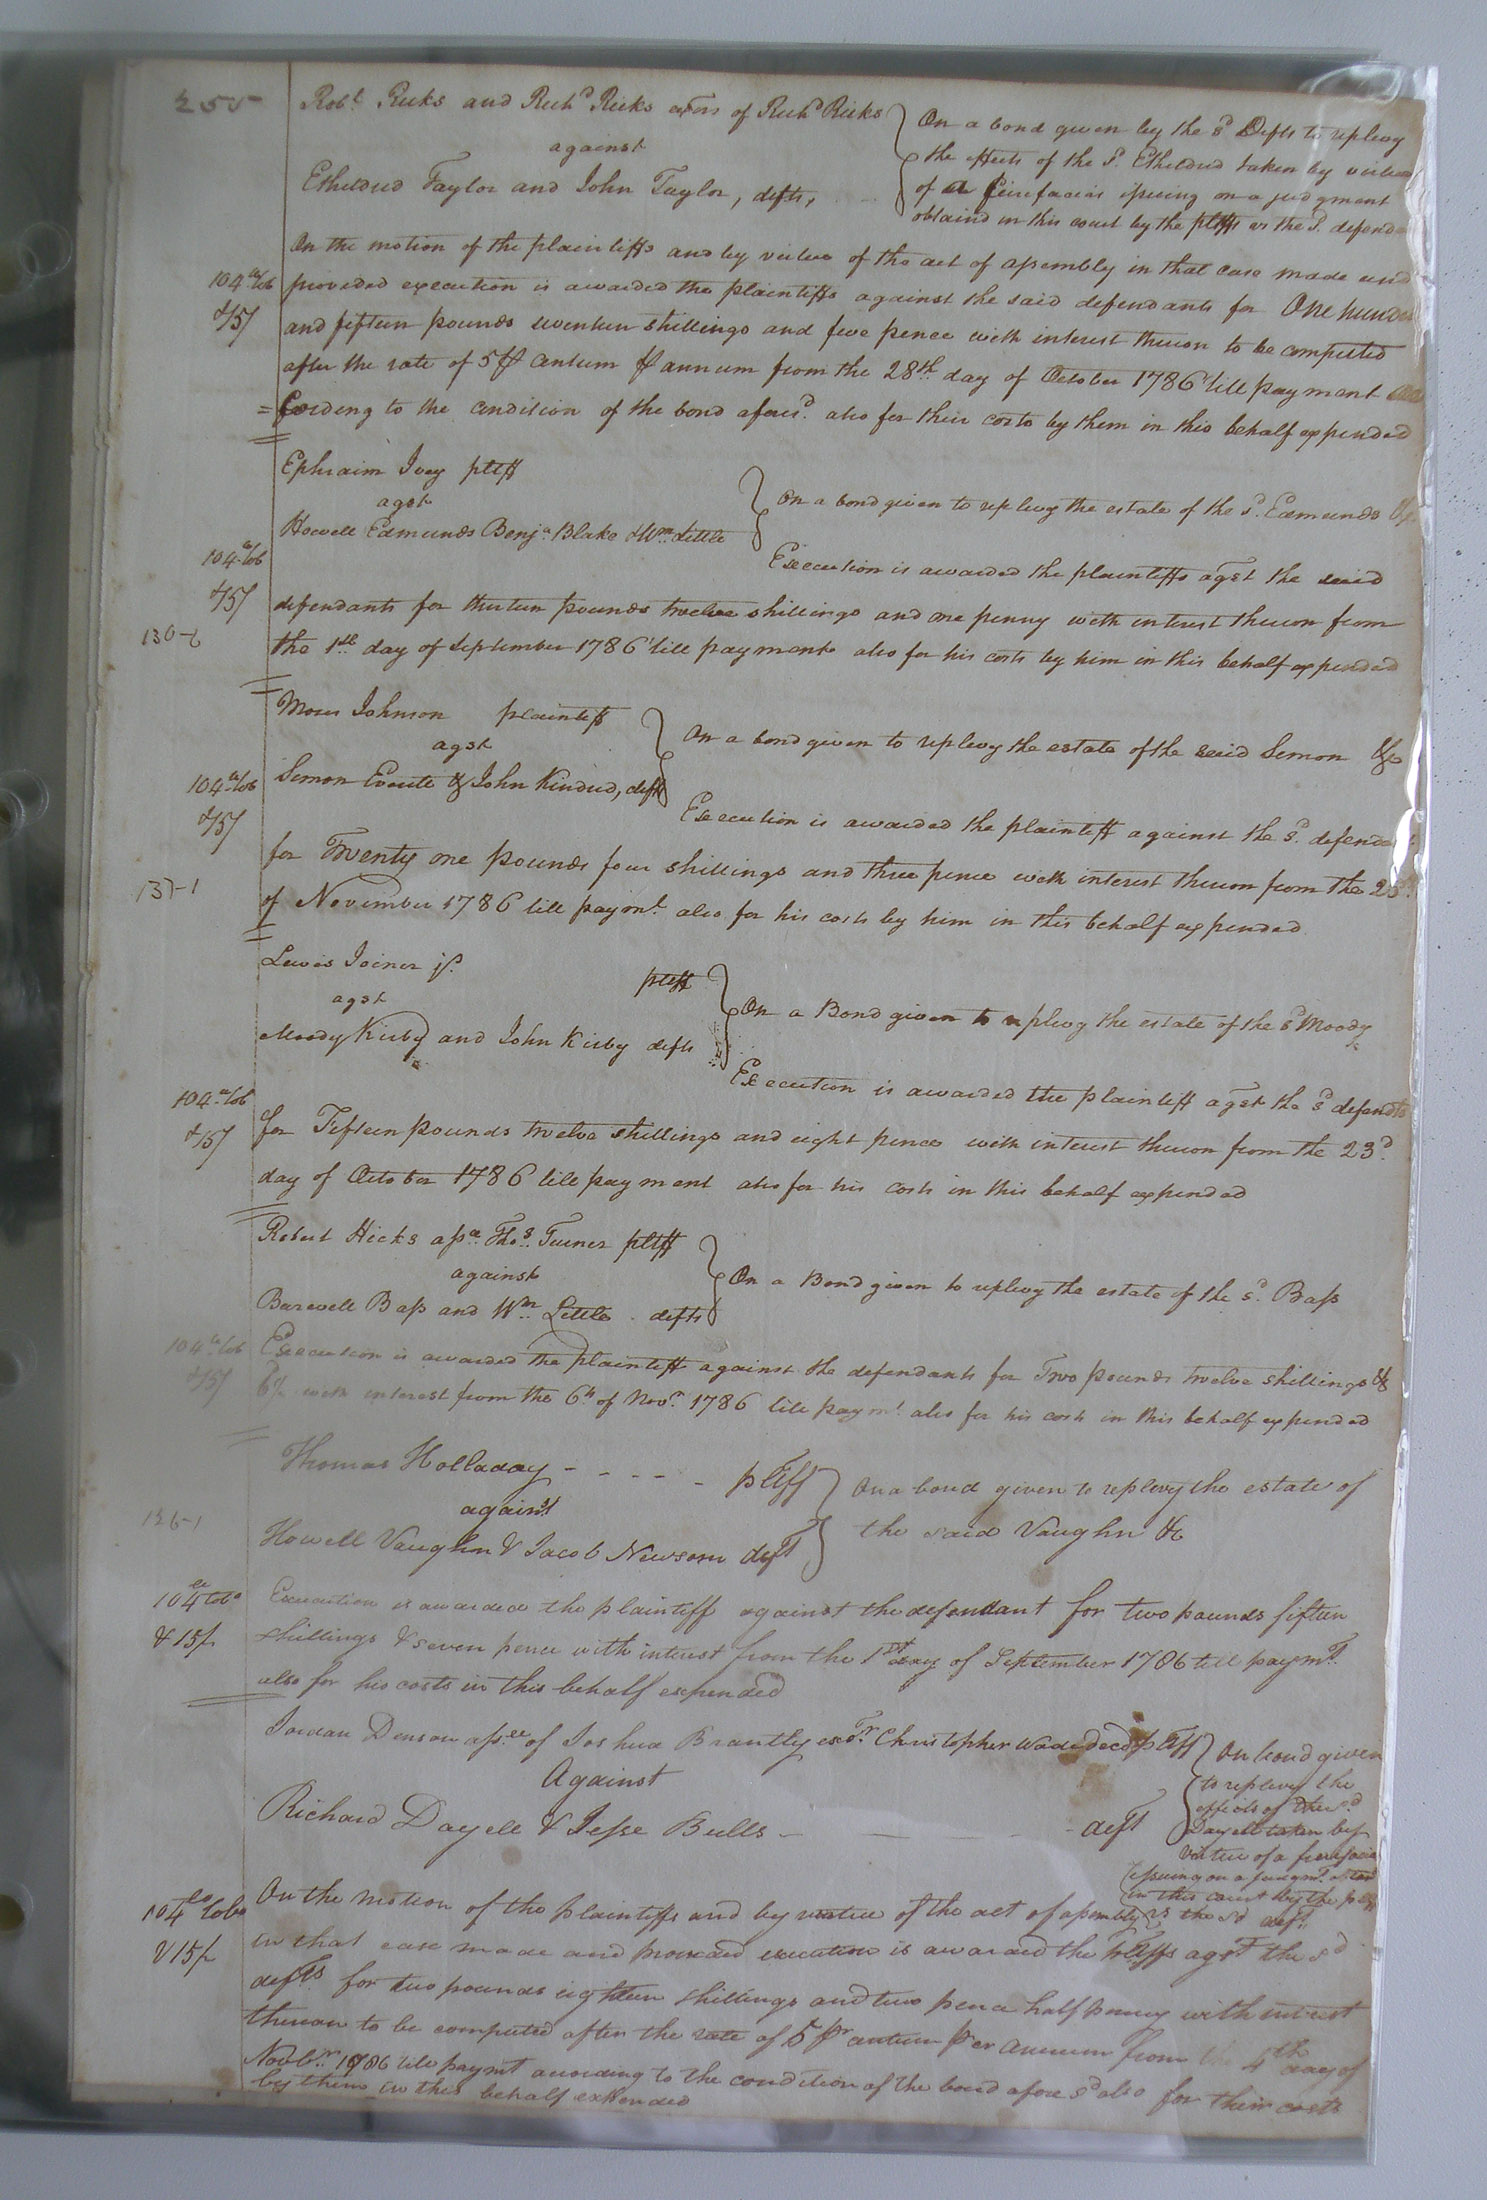 255
Robt. Ricks and Richd Ricks exors of Richd Ricks
against
Etheldred Taylor and John Taylor, defts,
On a bond given by the sd Defts to replevy
the effects of the sd. Etheldred taken by virtue
of a fierifacias issuing on a judgment
obtaind in this court by the pltffs vs the sd. defenda
On the motion of the plaintiffs and by virtue of the act of assembly in that case made and
104 lb tob provided execution is awarded the plaintiffs against the said defendants for One hundre
&15/ and fifteen pounds seventeen shillings and five pence with interest thereon to be computed
after the rate of 5 ⅌ centum ⅌ annum from the 28th day of October 1786 till payment ac
=cording to the condition of the bond aforesd. also for their costs by them in this behalf expended
Ephraim Ivey pltff
agst
Howell Edmunds Benja Blake & Wm Little
On a bond given to replevy the estate of the sd. Edmunds &c
104 lb tob Execution is awarded the plaintiffs agst the said
&15/ defendants for thirteen pounds twelve shillings and one penny with interest thereon from
136-6 the 1st day of September 1786 till payment also for his costs by him in this behalf expended
Moses Johnson plaintiff
agst
Simon Everite & John Kindred, defts
On a bond given to replevy the estate of the said Simon &c
104 lb tob
&15/ Execution is awarded the plaintiff against the sd. defenda
for Twenty one pounds four shillings and three pence with interest thereon from the 23d
137-1 of November 1786 till paymt. also for his costs by him in this behalf expended
Lewis Joiner jr. pltff
agst
Moody Kirby and John Kirby defts
On a Bond given to replevy the estate of the sd Moody &c
Execution is awarded the plaintiff agst the sd defendts
104 lb tob
&15/ for Fifteen pounds twelve shillings and eight pence with interest thereon from the 23d.
day of October 1786 till payment also for his costs in this behalf expended
Robert Hicks asse. Thos. Turner pltff
against
Burwell Bass and Wm. Little defts
On a Bond given to replevy the estate of the sd. Bass
104 lb tob Execution is awarded the plaintiff against the defendants for Two pounds twelve shillings &
&15/ 6/ with interest from the 6th of Novr. 1786 till paymt. also for his costs in this behalf expended
Thomas Holladay - - - - - pltff
against
136-1
Howell Vaughn & Jacob Newsom deft
On a bond given to replevy the estate of
the said Vaughn &c
104 lb tobo Execution is awarded the plaintiff against the defendant for two pounds fifteen
& 15/ shillings & seven pence with interest from the 1st day of September 1786 till paymt.
also for his costs in this behalf expended
Jordan Denson asse of Joshua Brantley exor. Christopher Wade decd pltff
Against
Richard Dayell & Jesse Bulls - deft
On bond given
to replevy the
effects of the sd
Dayell taken by
virtue of a fierifacias
issuing on a judgmt. obtaid
in this court by the pltff
vs the sd deft.
104 lb tobo On the motion of the plaintiffs and by virtue of the act of assembly
& 15/ in that case made and provided execution is awarded the Pltffs agst the sd
defts for two pounds eighteen shillings and two pence half penny with interest
thereon to be computed after the rate of 5 pr centum per annum from the 4th day of
Novbr. 1786 till paymt according to the condition of the bond afore sd also for their costs
by them in this behalf expended